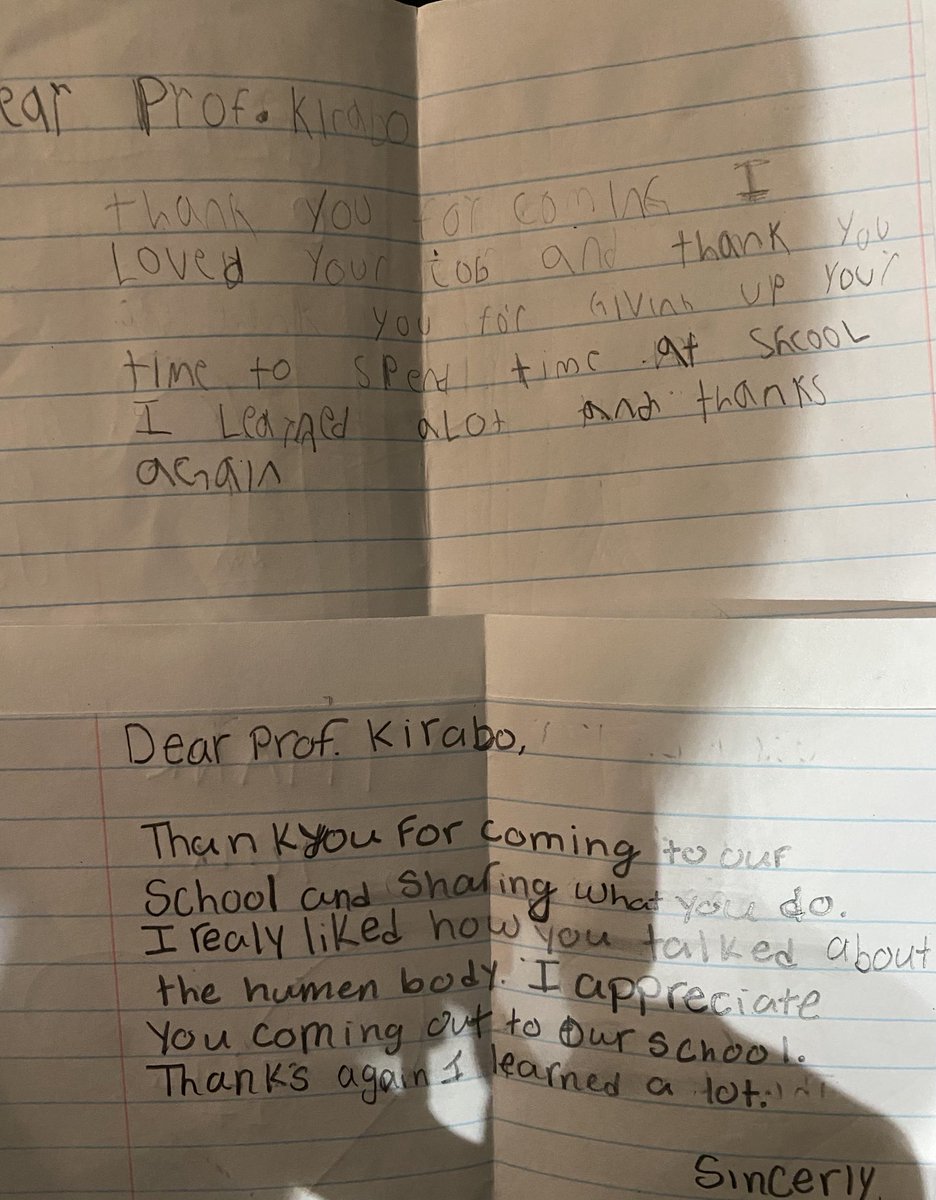 ear Prof. Kirabo
thank you for coming I
Loved your job and thank you
you for Giving up your
time to spend time at Shcool
I Learned alot and thanks
again
Dear Prof. Kirabo,
Thank you For coming to our
School and Sharing what you do.
I realy liked how you talked about
the humen body. I appreciate
you coming out to our school.
Thanks again I learned a lot.
Sincerly